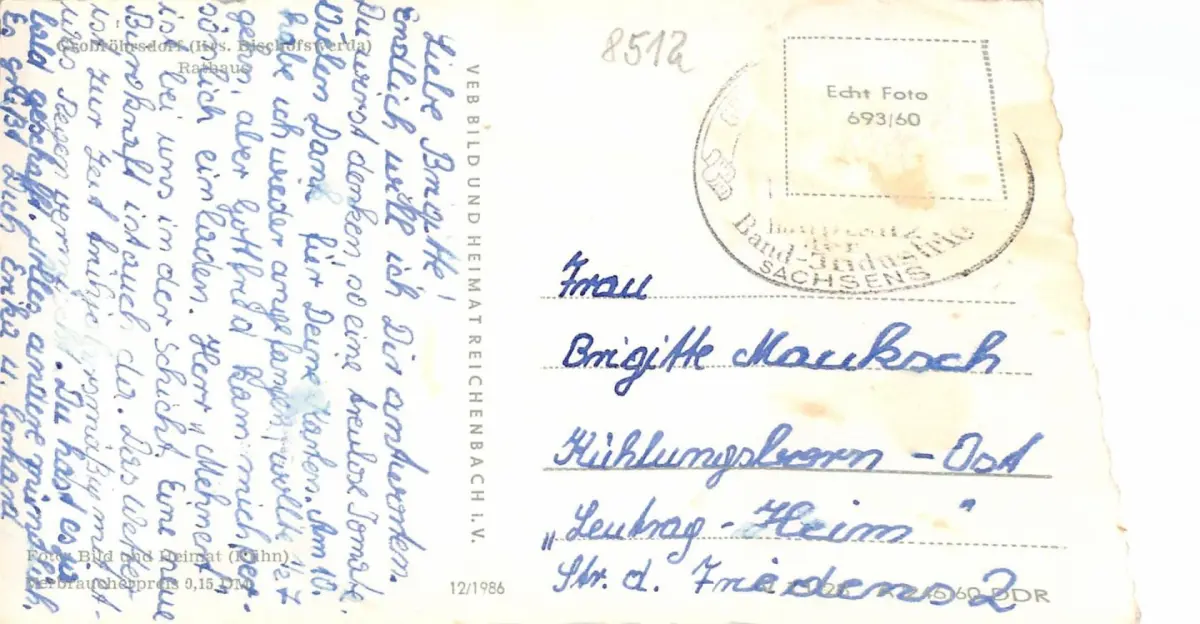 Großröhrsdorf (Krs. Bischofswerda)
Rathaus
Liebe Brigitte!
Endlich will ich Dir antworten.
Du wirst denken, so eine treulose Tomate.
Vielen Dank für Deine Karten. Am 10.
habe ich wieder angefangen, wollte 1/2 7
gehen, aber Gottfried kam mich per-
sönlich einladen. Herr „Mehnert"
ist bei uns in der Schicht. Eine neue
Bürokraft ist auch da. Das Wetter
ist zur Zeit frühjahrsmäßig mit
Regen vermischt. Du hast es ja
bald geschafft. Alles andere mündlich.
Es grüßt Dich Erika u. Gerhard
Foto: Bild und Heimat (Kühn)
Verbraucherpreis 0,15 DM
VEB BILD UND HEIMAT REICHENBACH i. V.
12/1986
8512
Echt Foto
693/60
Band-Industrie
SACHSENS
Frau
Brigitte Mauksch
Kühlungsborn - Ost
„Leutrag - Heim"
Str. d. Friedens 2
60 DDR